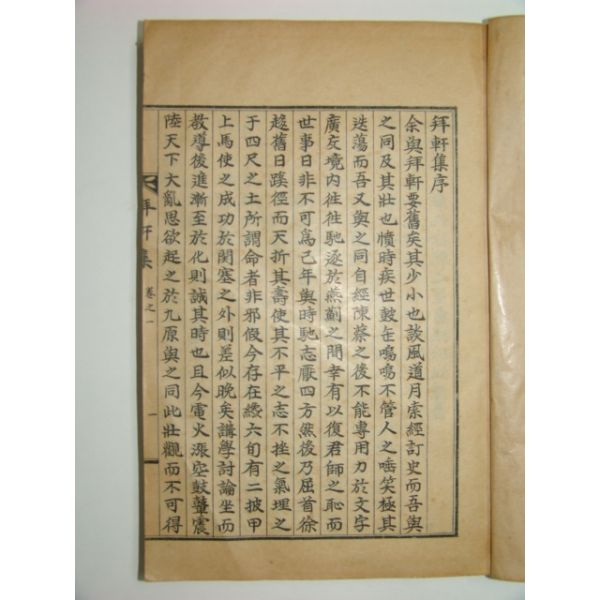 拜軒集序
余與拜軒要舊矣其少小也談風道月索經訂史而吾與
之同及其壯也憤時疾世鼓缶鳴鳴不管人之唾笑極其
迭蕩而吾又與之同自經陳蔡之後不能專用力於文字
廣交境內徃徃馳逐於燕薊之間幸有以復君師之恥而
世事日非不可爲己年與時馳志厭四方然後乃屈首徐
趍舊日蹊徑而天折其壽使其不平之志不挫之氣埋之
于四尺之土所謂命者非邪假今存在纔六旬有二披甲
上馬使之成功於關塞之外則差似晚矣講學討論坐而
教導後進漸至於化則誠其時也且今電火漲空鼓鼙震
陸天下大亂思欲起之於九原與之同此壯觀而不可得
拜軒集
卷之一
一